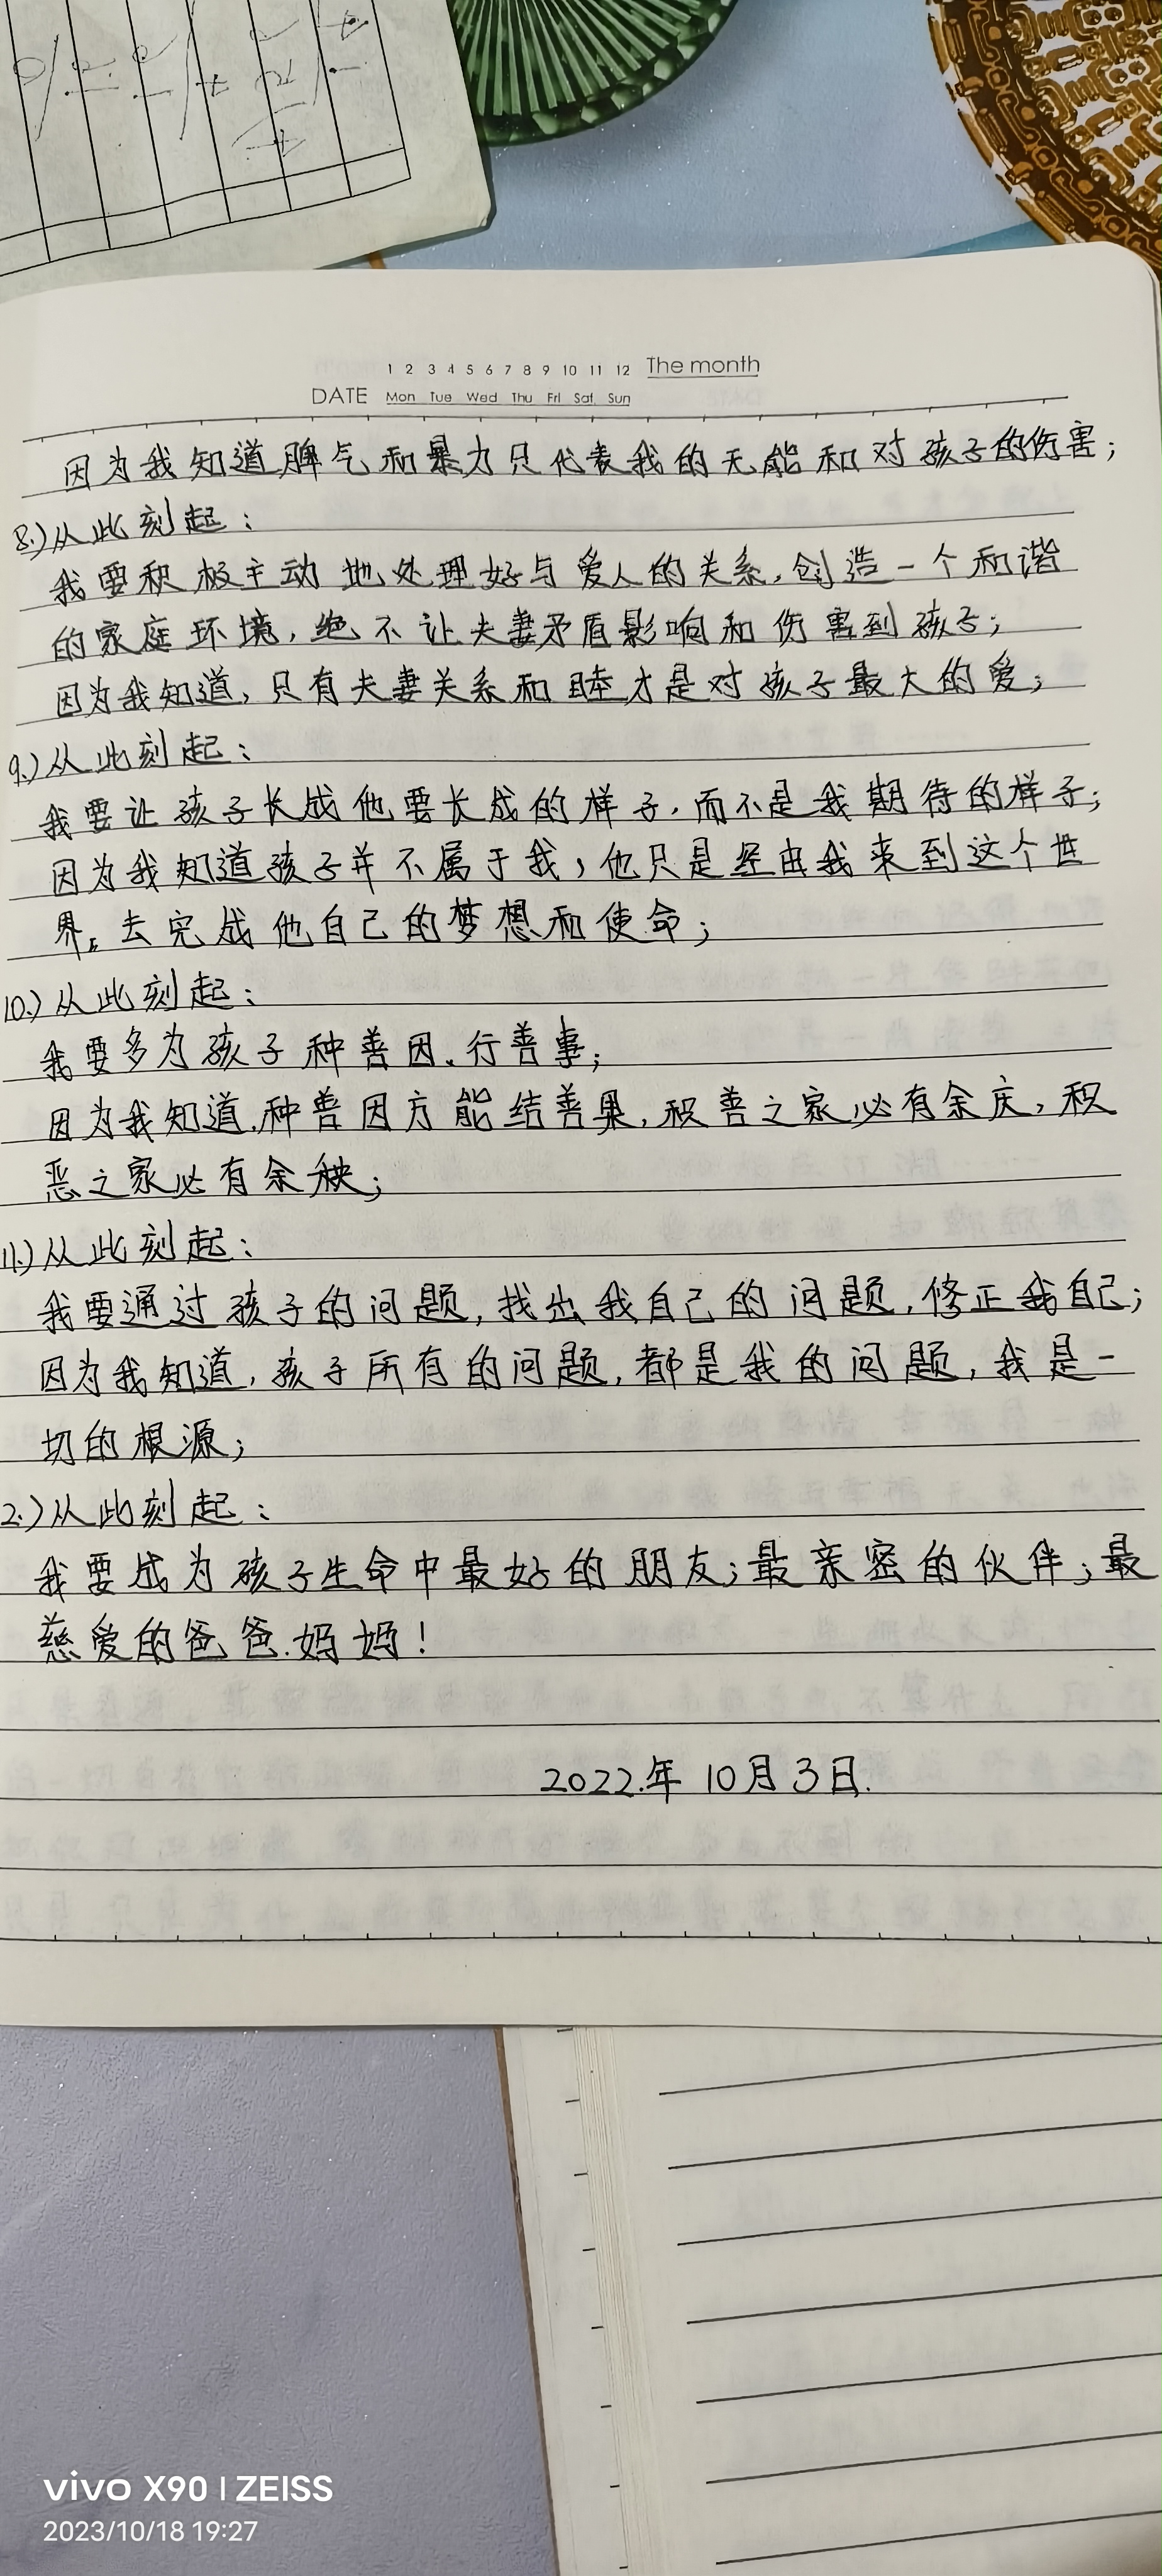 1 2 3 4 5 6 7 8 9 10 11 12 The month
DATE Mon Tue Wed Thu Fri Sat Sun
因为我知道脾气和暴力只代表我的无能和对孩子的伤害；
8.)从此刻起：
我要积极主动地处理好与爱人的关系,创造一个和谐
的家庭环境,绝不让夫妻矛盾影响和伤害到孩子；
因为我知道,只有夫妻关系和睦才是对孩子最大的爱；
9.)从此刻起：
我要让孩子长成他要长成的样子,而不是我期待的样子；
因为我知道孩子并不属于我,他只是经由我来到这个世
界。去完成他自己的梦想和使命；
10.)从此刻起：
我要多为孩子种善因、行善事；
因为我知道,种善因方能结善果,积善之家必有余庆,积
恶之家必有余秧；
11.)从此刻起：
我要通过孩子的问题,找出我自己的问题,修正我自己；
因为我知道,孩子所有的问题,都是我的问题,我是一
切的根源；
2.)从此刻起：
我要成为孩子生命中最好的朋友；最亲密的伙伴；最
慈爱的爸爸.妈妈！
2022.年10月3日.
vivo X90 | ZEISS
2023/10/18 19:27